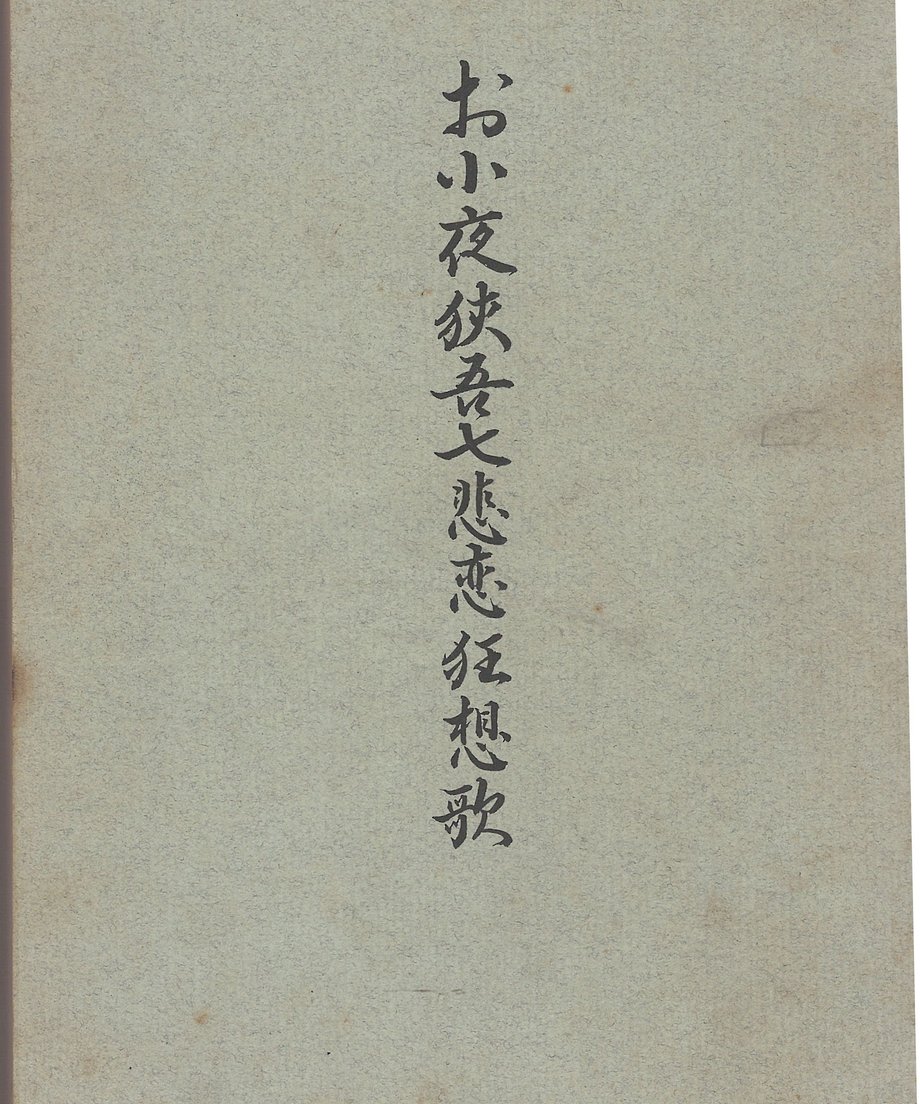 お小夜狭吾七悲恋狂想歌